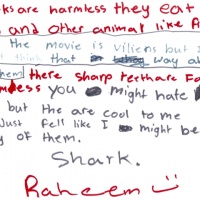 ks are harmless they eat
and other animal like f
the movie is villiers but I
think that way a
hem there sharp
ness you might hate
but the are cool to me
Just fell like I might be
y of them.
Shark.
Raheem